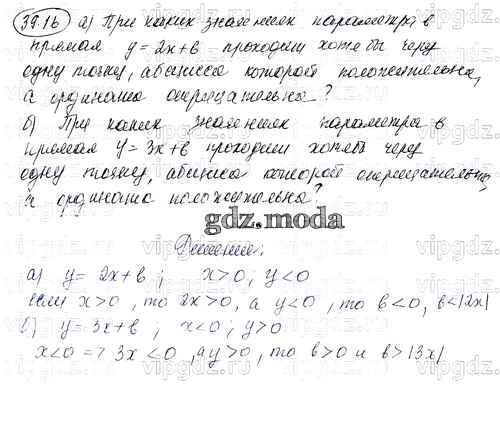 39.16 а) При каких значениях параметра в
прямая y = 2x+в проходит хотя бы через
одну точку, абсцисса которой положительна,
а ордината отрицательна?
б) При каких значениях параметра в
прямая y = 3x+в проходит хотя бы через
одну точку, абсцисса которой отрицательна,
а ордината положительна?
gdz.moda
Решение:
а) y = 2x+в ; x>0 ; y<0
если x>0 , то 2x>0, а y<0 , то в<0, в<|2x|
б) y = 3x+в ; x<0 ; y>0
x<0 => 3x<0 , а y>0 , то в>0 и в>|3x|